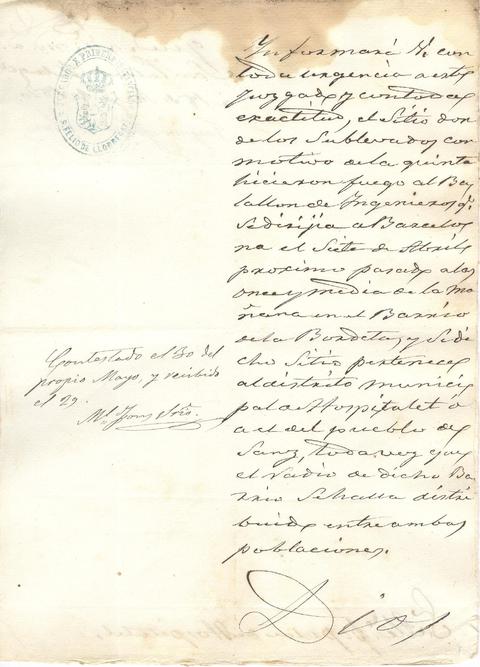 JUZGADO DE PRIMERA INSTANCIA
S. FELIO DE LLOBREGAT
Informará V. con
toda urgencia a este
Juzgado y con toda
exactitud, el Sitio don
de los Sublevados con
motivo de la quinta
hicieron fuego al Ba
tallon de Ingenieros q.
se dirijia a Barcelo
na el Siete de Abril
proximo pasado a las
once y media de la ma
ñana en el Barrio
de la Bordeta, y si di
cho Sitio pertenece
al distrito munici
pal de Hospitalet ó
a el del pueblo de
Sanz, toda vez que
el radio de dicho Ba
rrio se halla distri
buido entre ambas
poblaciones.
Dios
Contestado el 30 del
propio Mayo, y recibido
el 29.